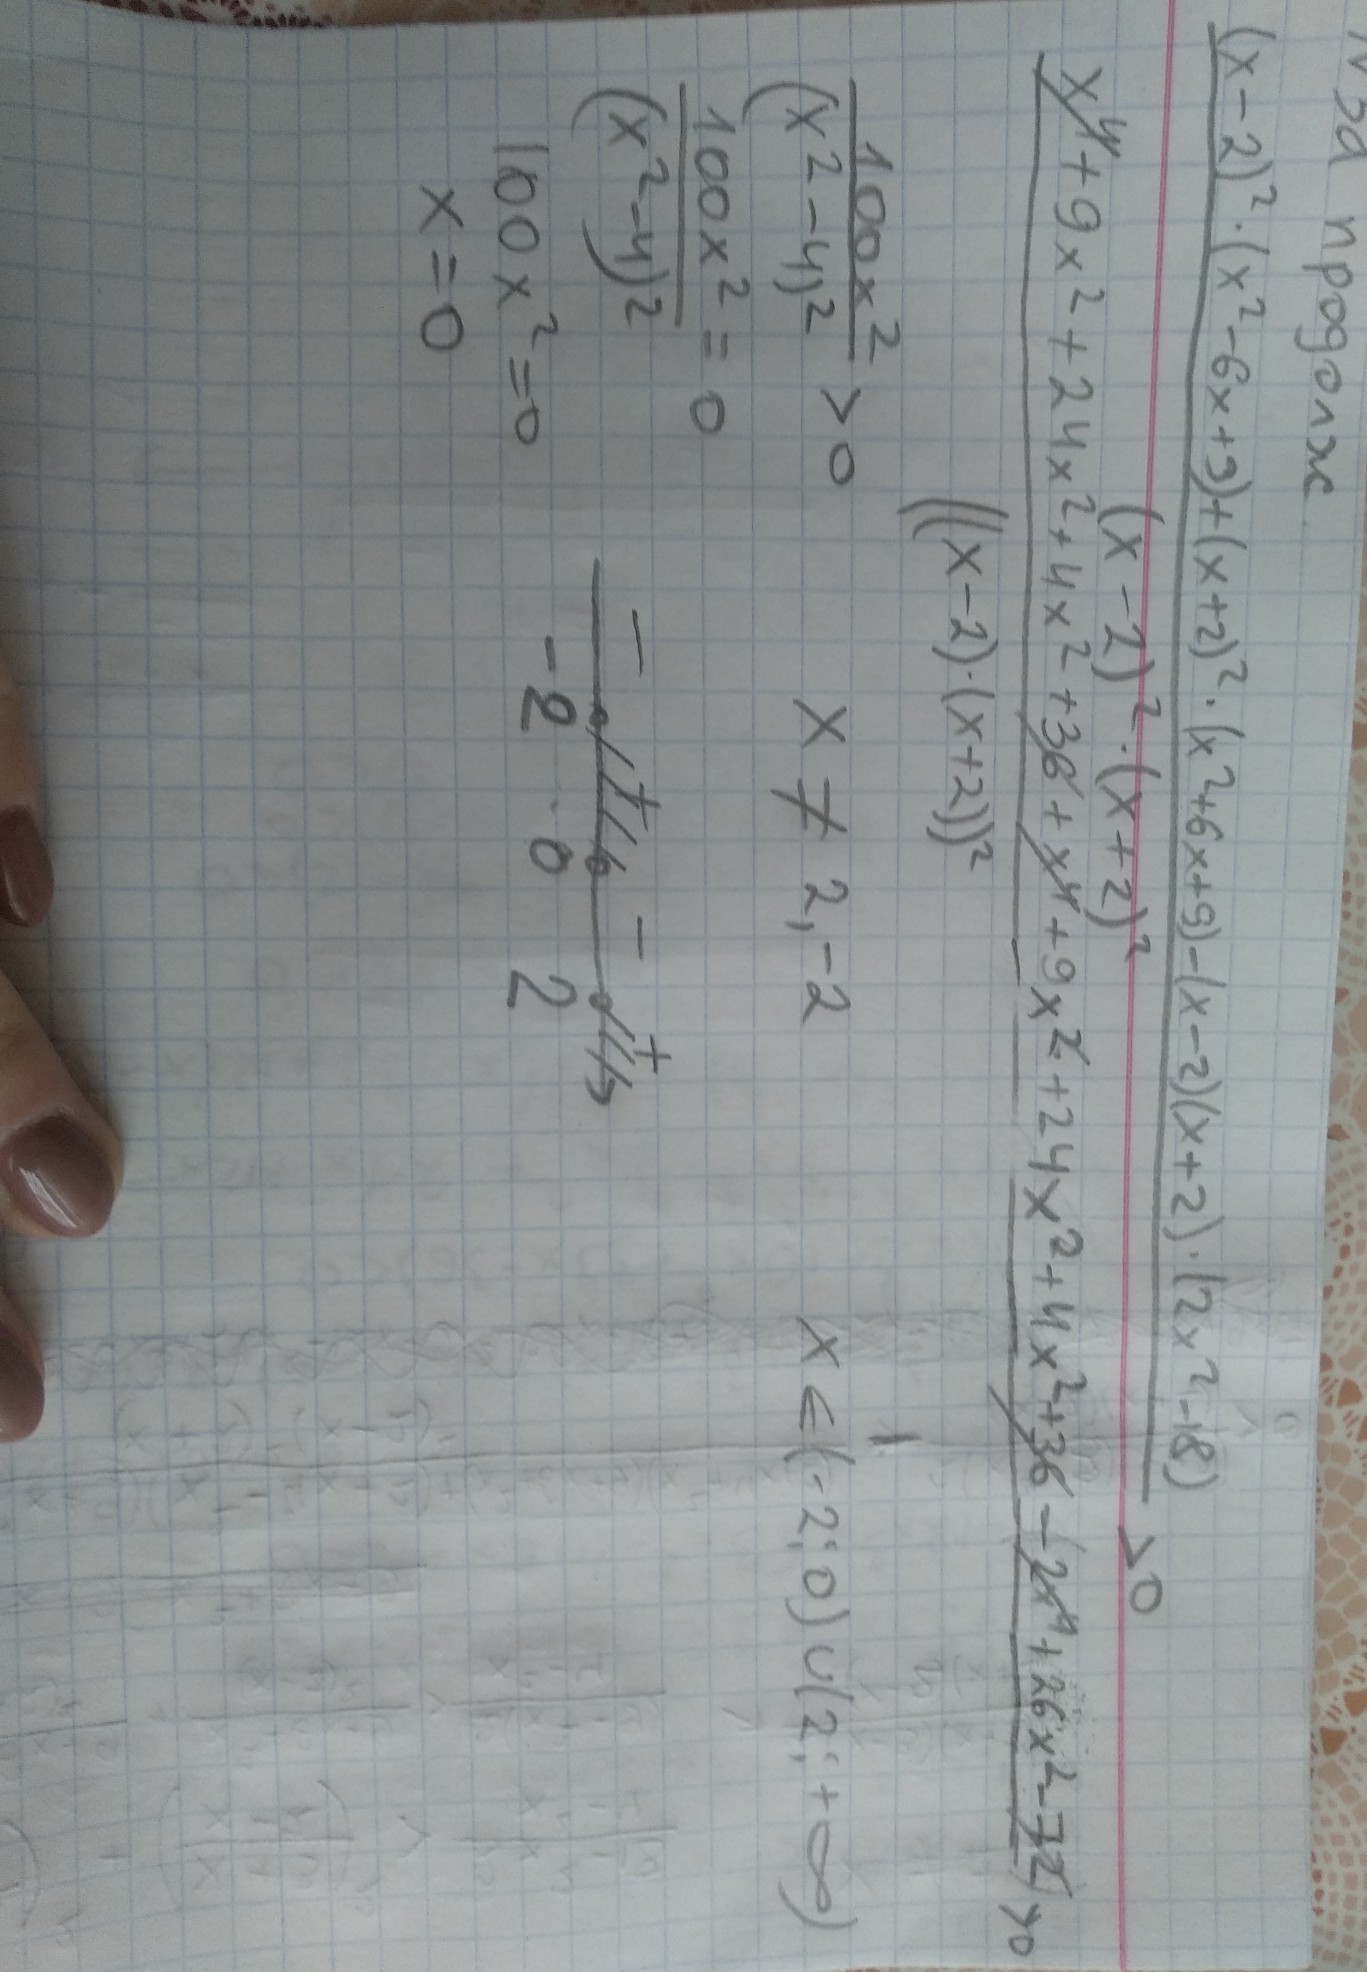 N 3а продолж.
(x-2)²·(x²-6x+9)+(x+2)²·(x²+6x+9)-(x-2)(x+2)·(2x²-18)
(x-2)²·(x+2)² >0
x⁴+9x²+24x²+4x²+36+x⁴+9x²+24x²+4x²+36-(2x⁴+26x²-72) >0
((x-2)·(x+2))²
100x²
(x²-4)² >0 x ≠ 2,-2 x ∈ (-2;0)∪(2;+∞)
100x²
(x²-4)² =0 - + - +
100x²=0 -2 0 2
x=0